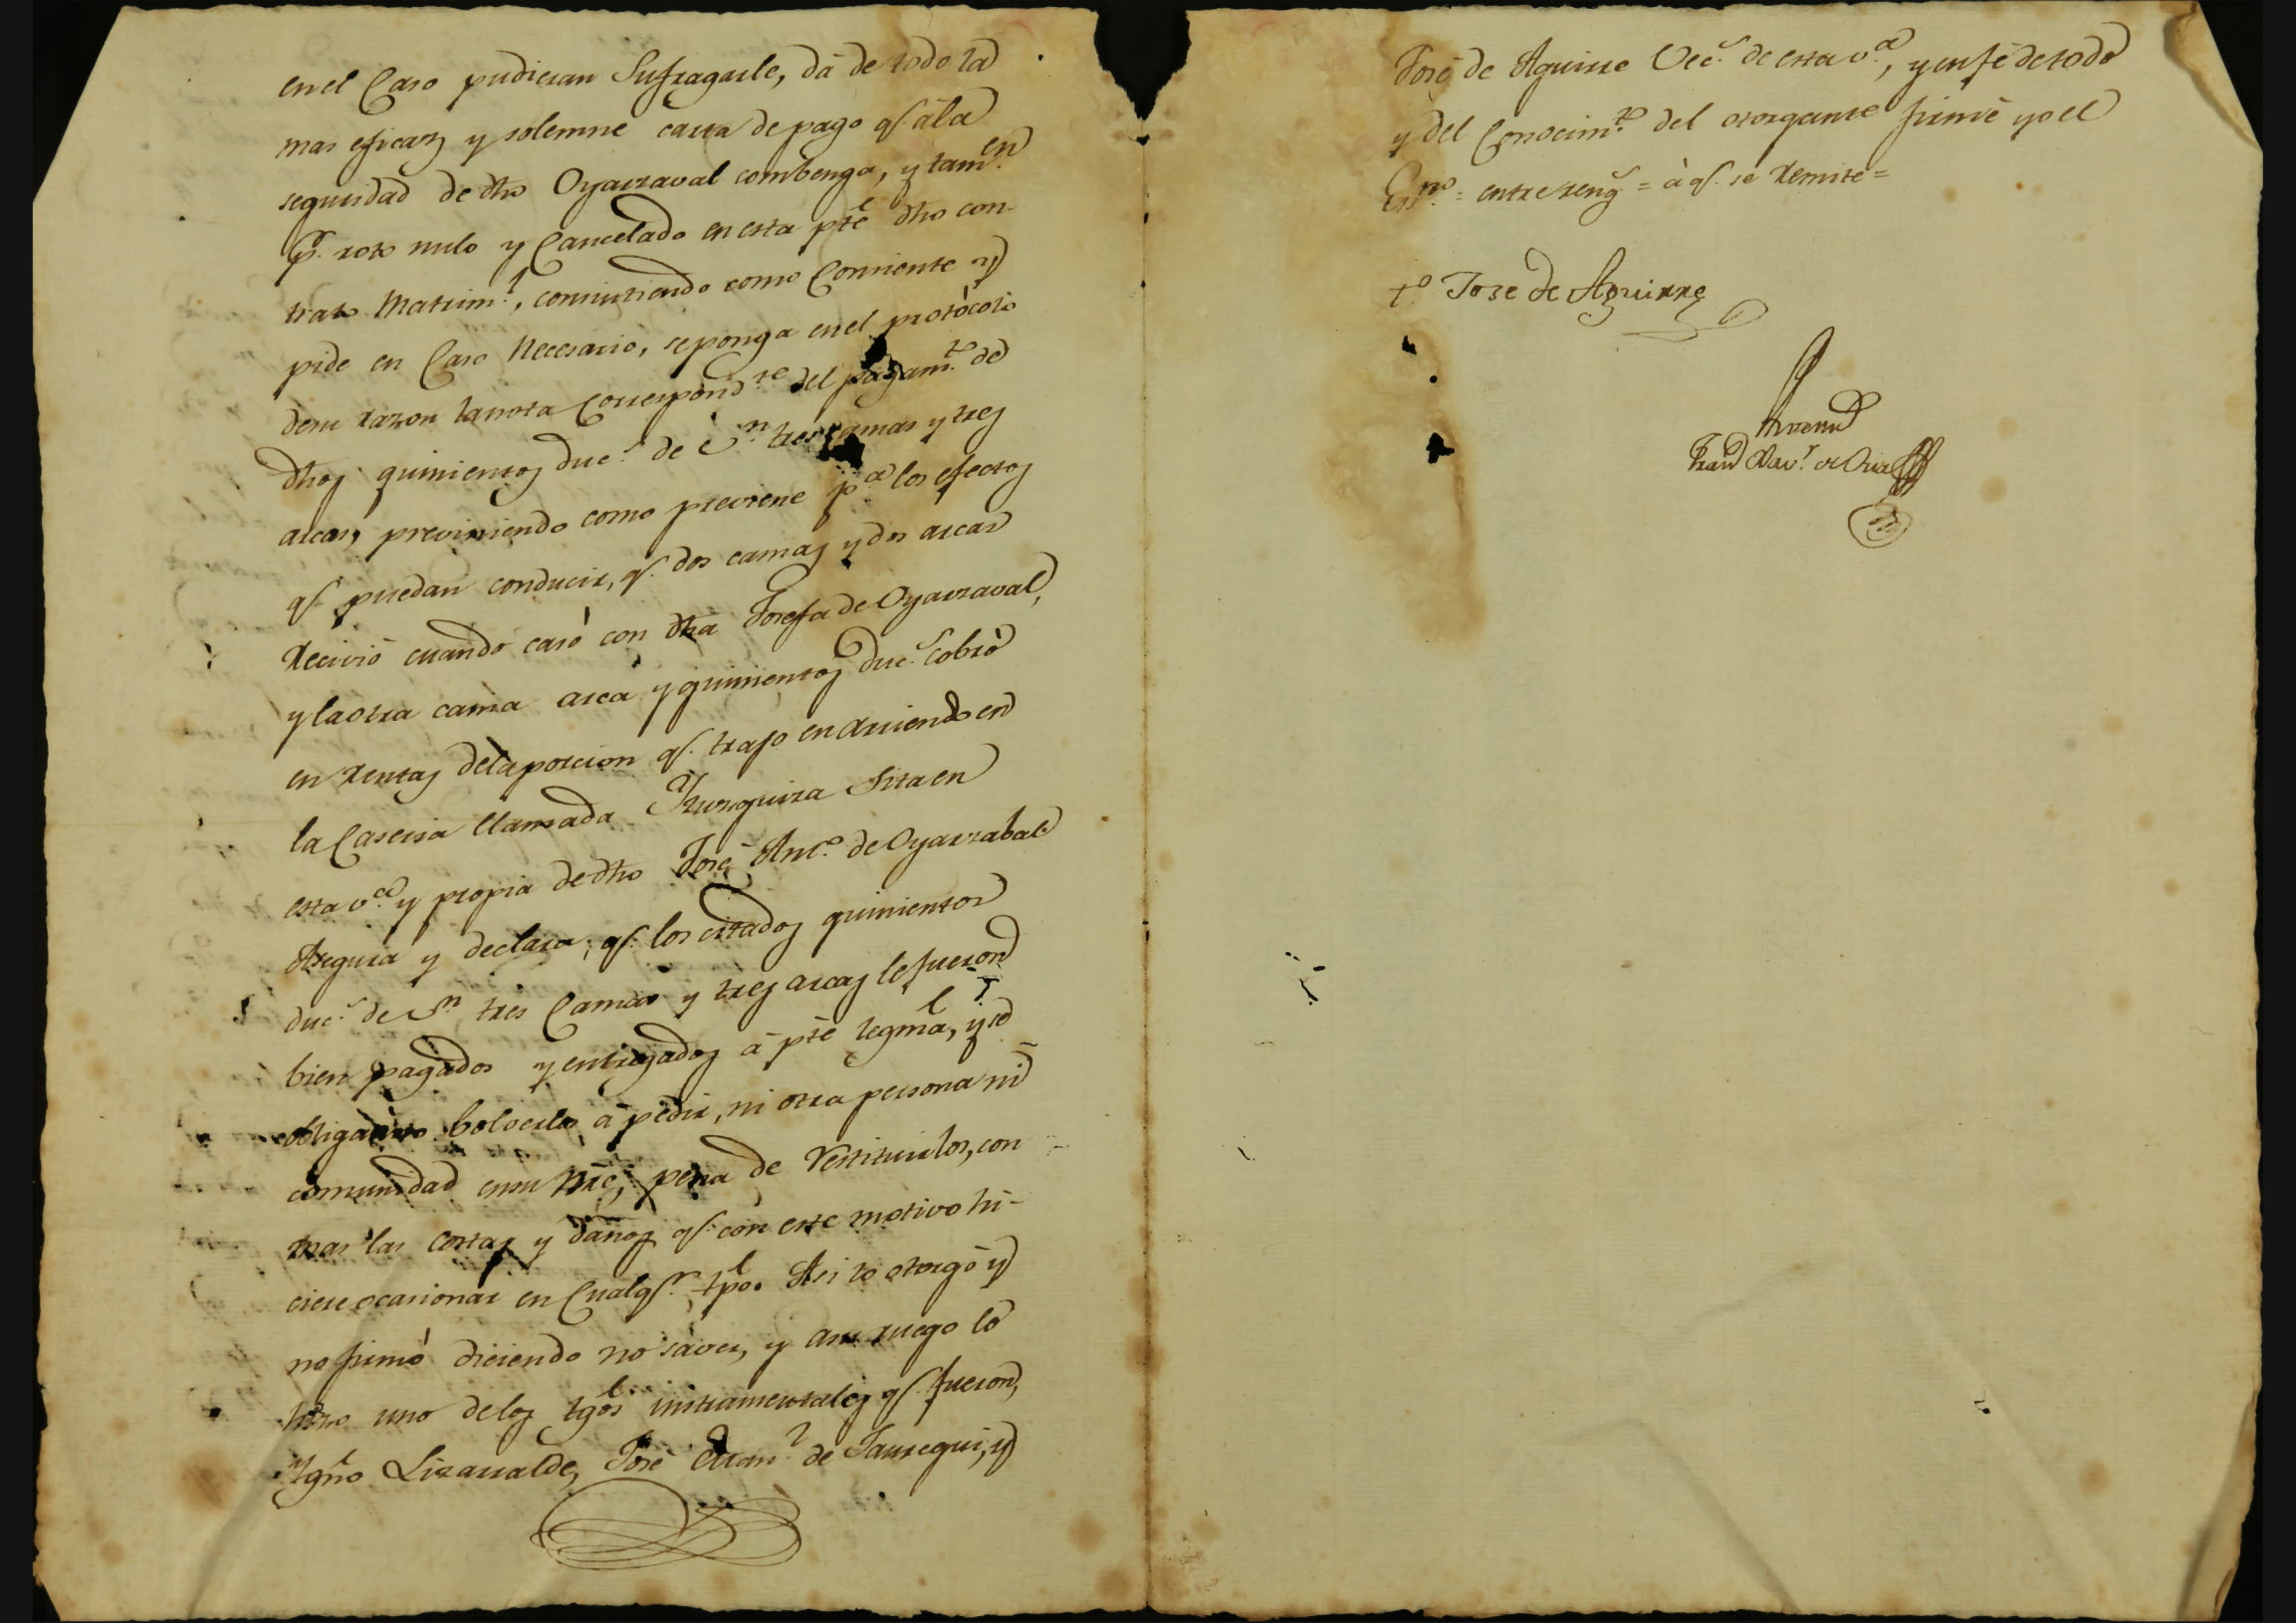 en el Caso pudieran Sufragarle, dá de todo la
mas eficaz y solemne carta de pago qe. á la
seguridad de dho Oyarzaval combenga, y tamen.
pr. roto nulo y Cancelado en esta pte dho con-
trato Matriml., consintiendo como Consiente y
pide en Caso Necesario, se ponga en el protócolo
de su razon la nota Correspondte del pagamto. de
dhos quinientos ducs. de vn. tres camas y tres
arcas, previniendo como previene pa. los efectos
qe. puedan conducir, qe. dos camas y dos arcas
recivió cuando casó con dha Josefa de Oyarzaval,
y la otra cama arca y quinientos ducs. cobró
en rentas de la porcion qe. trajo en arriendo en
la Caseria llamada
esta va. y propia de dho José Anto. de Oyarzabal
Asegura y declara, qe. los citados quinientos
ducs. de vn. tres Camas y tres arcas le fueron
bien pagados y entregados á pte legma, y se
obliga á no bolverlos á pedir, ni otra persona ni
comunidad en su Nre, pena de restituirlos, con
mas las costas y daños qe. con este motivo hi-
ciese ocasionar en Cualqr. tpo. Asi lo otorgó y
no firmó diciendo no saver, y a su ruego lo
hizo uno de los tgos instrumentales qe. fueron,
Ygno Lizarralde, José Manl. de Jauregui, y
José de Aguirre Vecs. de esta va., y en fé de todo
y del Conocimto. del otorgante firmé yo el
Essno. = entre rengs = á qe. se remite =
to. Jose de Aguirre
Antemi
Franco Xavr. de Oria